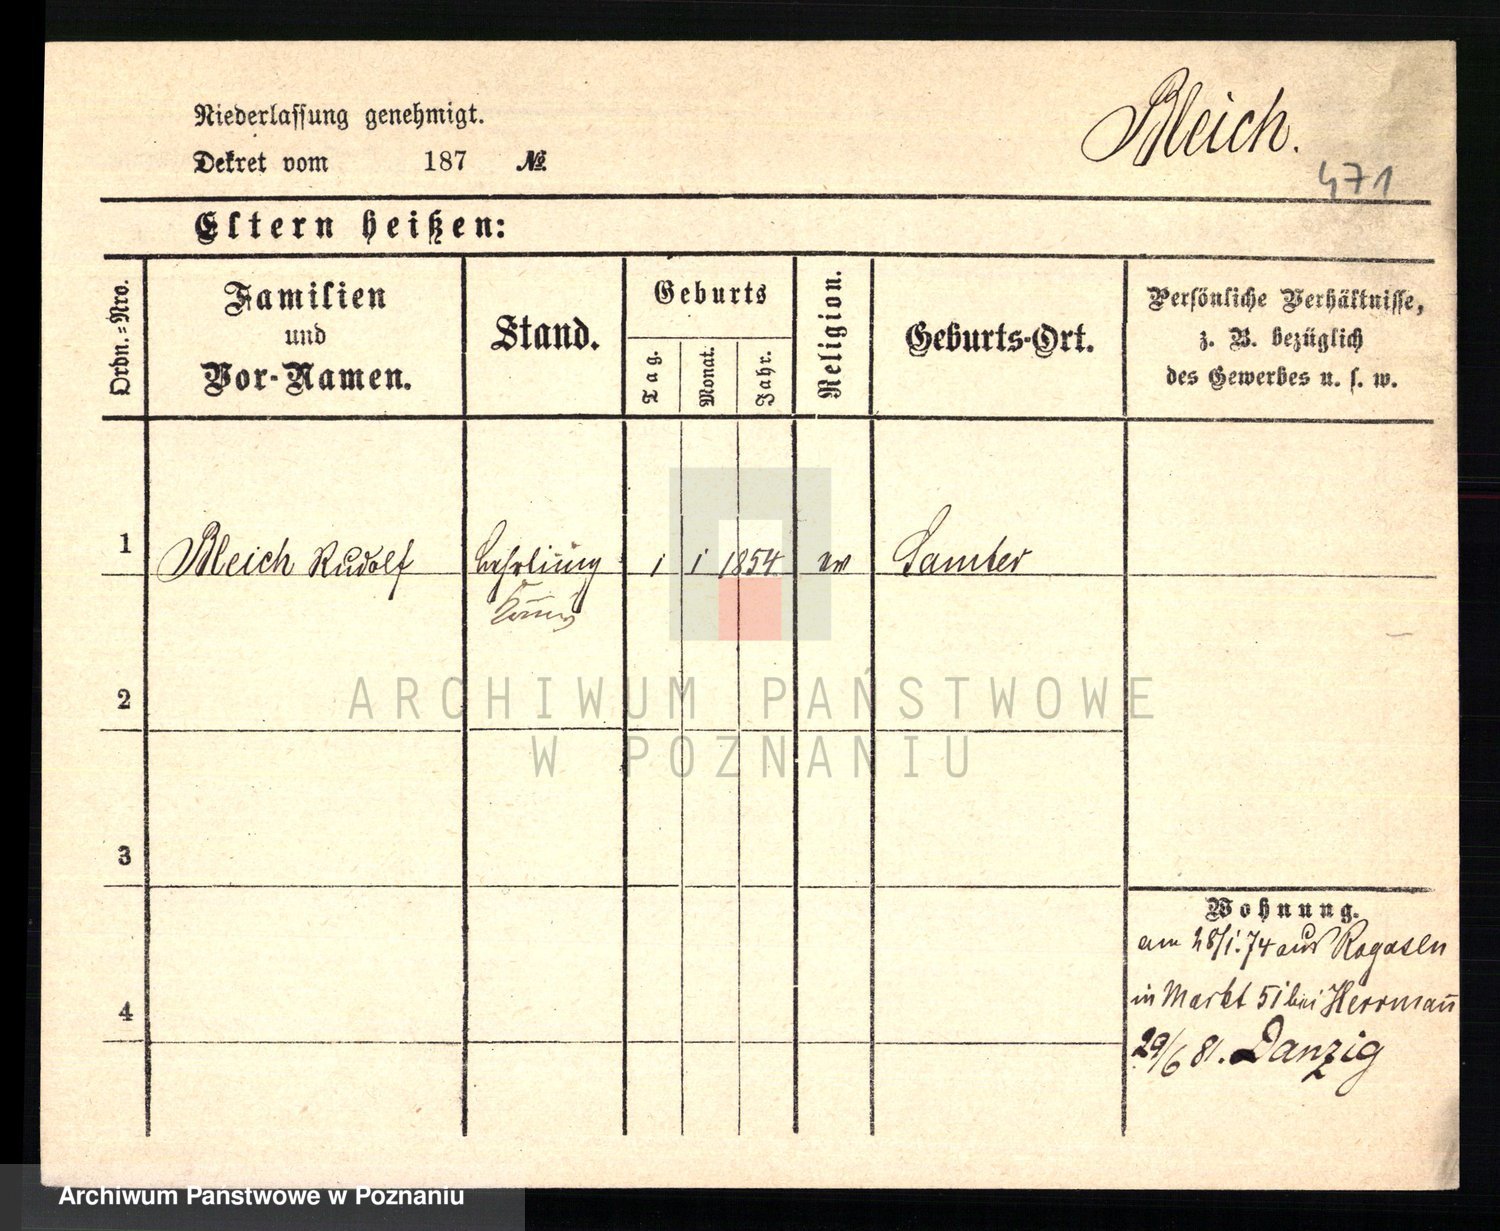 Niederlassung genehmigt.
Dekret vom 187 №
Bleich.
471
Eltern heißen:
Ordn.-Nro.
Familien
und
Vor-Namen.
Stand.
Geburts
Tag.
Monat.
Jahr.
Religion.
Geburts-Ort.
Persönliche Verhältnisse,
z. B. bezüglich
des Gewerbes u. s. w.
1
Bleich Rudolf
Lehrling
1 1 1854
ev
Samter
2
3
4
Wohnung.
am 28/1.74 aus Rogasen
in Markt 51 bei Herrmañ
29/6 81. Danzig
ARCHIWUM PAŃSTWOWE
W POZNANIU
Archiwum Państwowe w Poznaniu